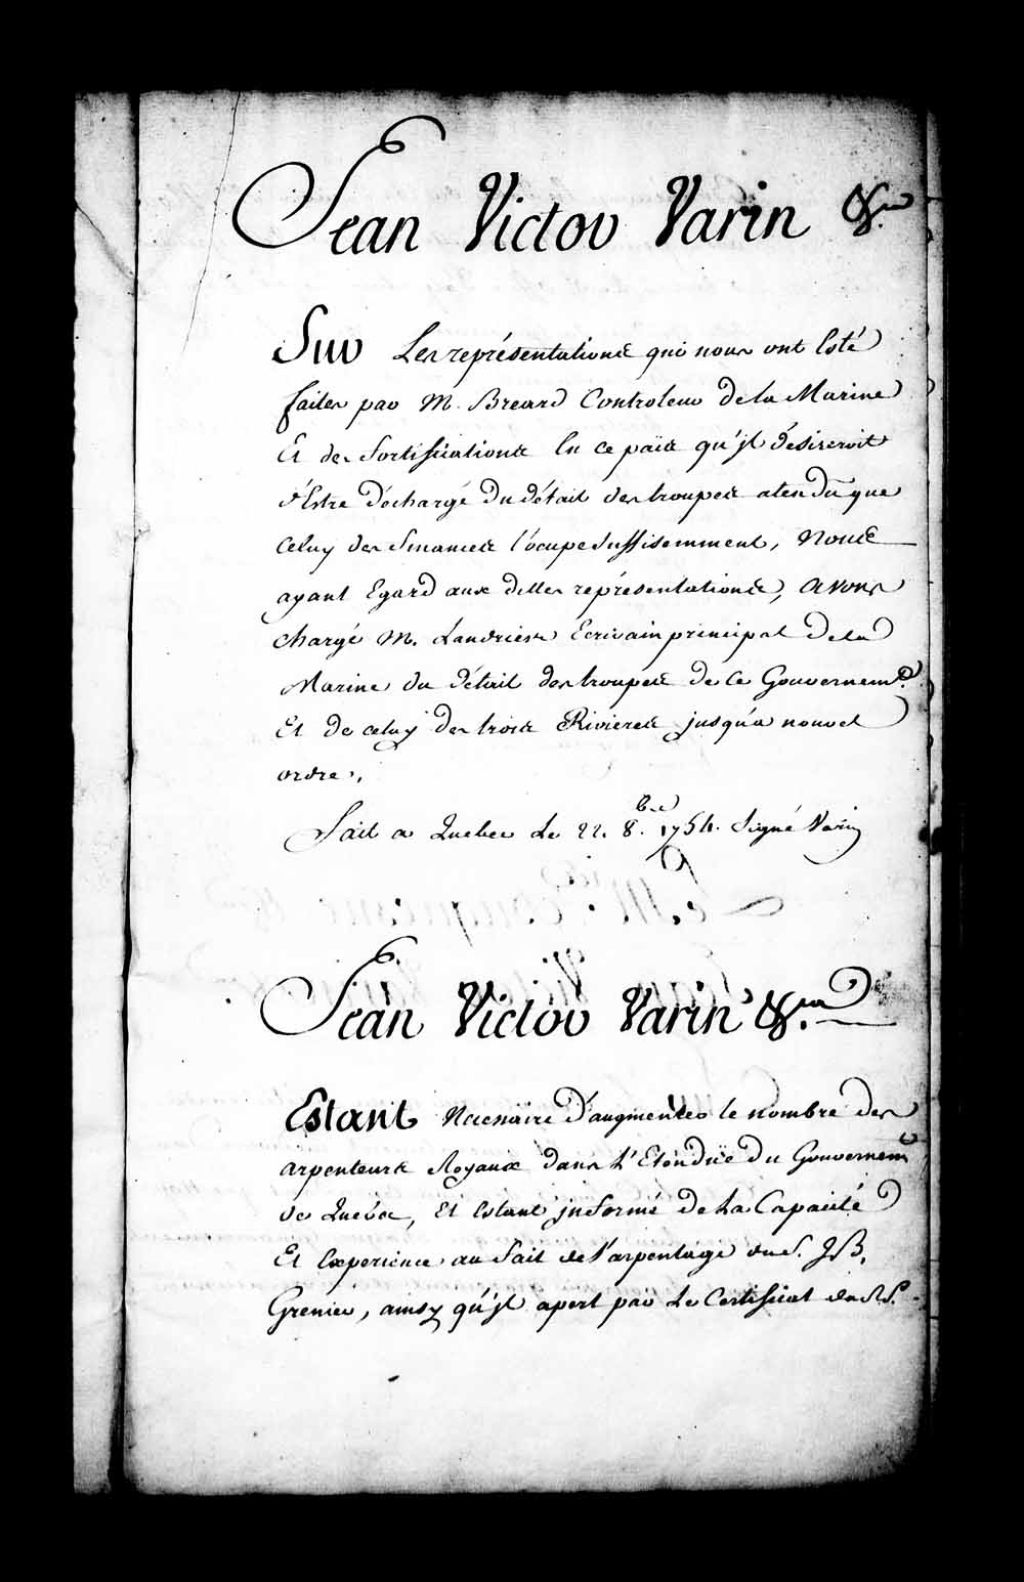 Jean Victor Varin &.a
Sur Les représentations qui nous ont Esté
faites par M. Breard Controleur De la Marine
Et des fortifications En ce païs qu'jl désireroit
d'Estre déchargé Du détail des troupes atendu que
Celuy des finances l'ocupe suffisemment, Nous
ayant Egard aux dittes représentations, avons
chargé M. Landriesve Ecrivain principal De la
Marine du détail des troupes De Ce Gouvernemt.
Et De celuy Des trois Rivieres jusqu'a nouvel
ordre.,
Fait a Quebec Le 22. 8.bre 1754. Signé Varin
Jean Victor Varin &.a
Estant Necessaire D'augmenter le nombre des
arpenteurs Royaux dans L'Etenduë Du Gouvernemt
de Quebec, Et Estant jnformé De La Capacité
Et Experience au fait de l'arpentage du S. J B,
Grenier, ainsy qu'jl apert par Le Certificat du S.